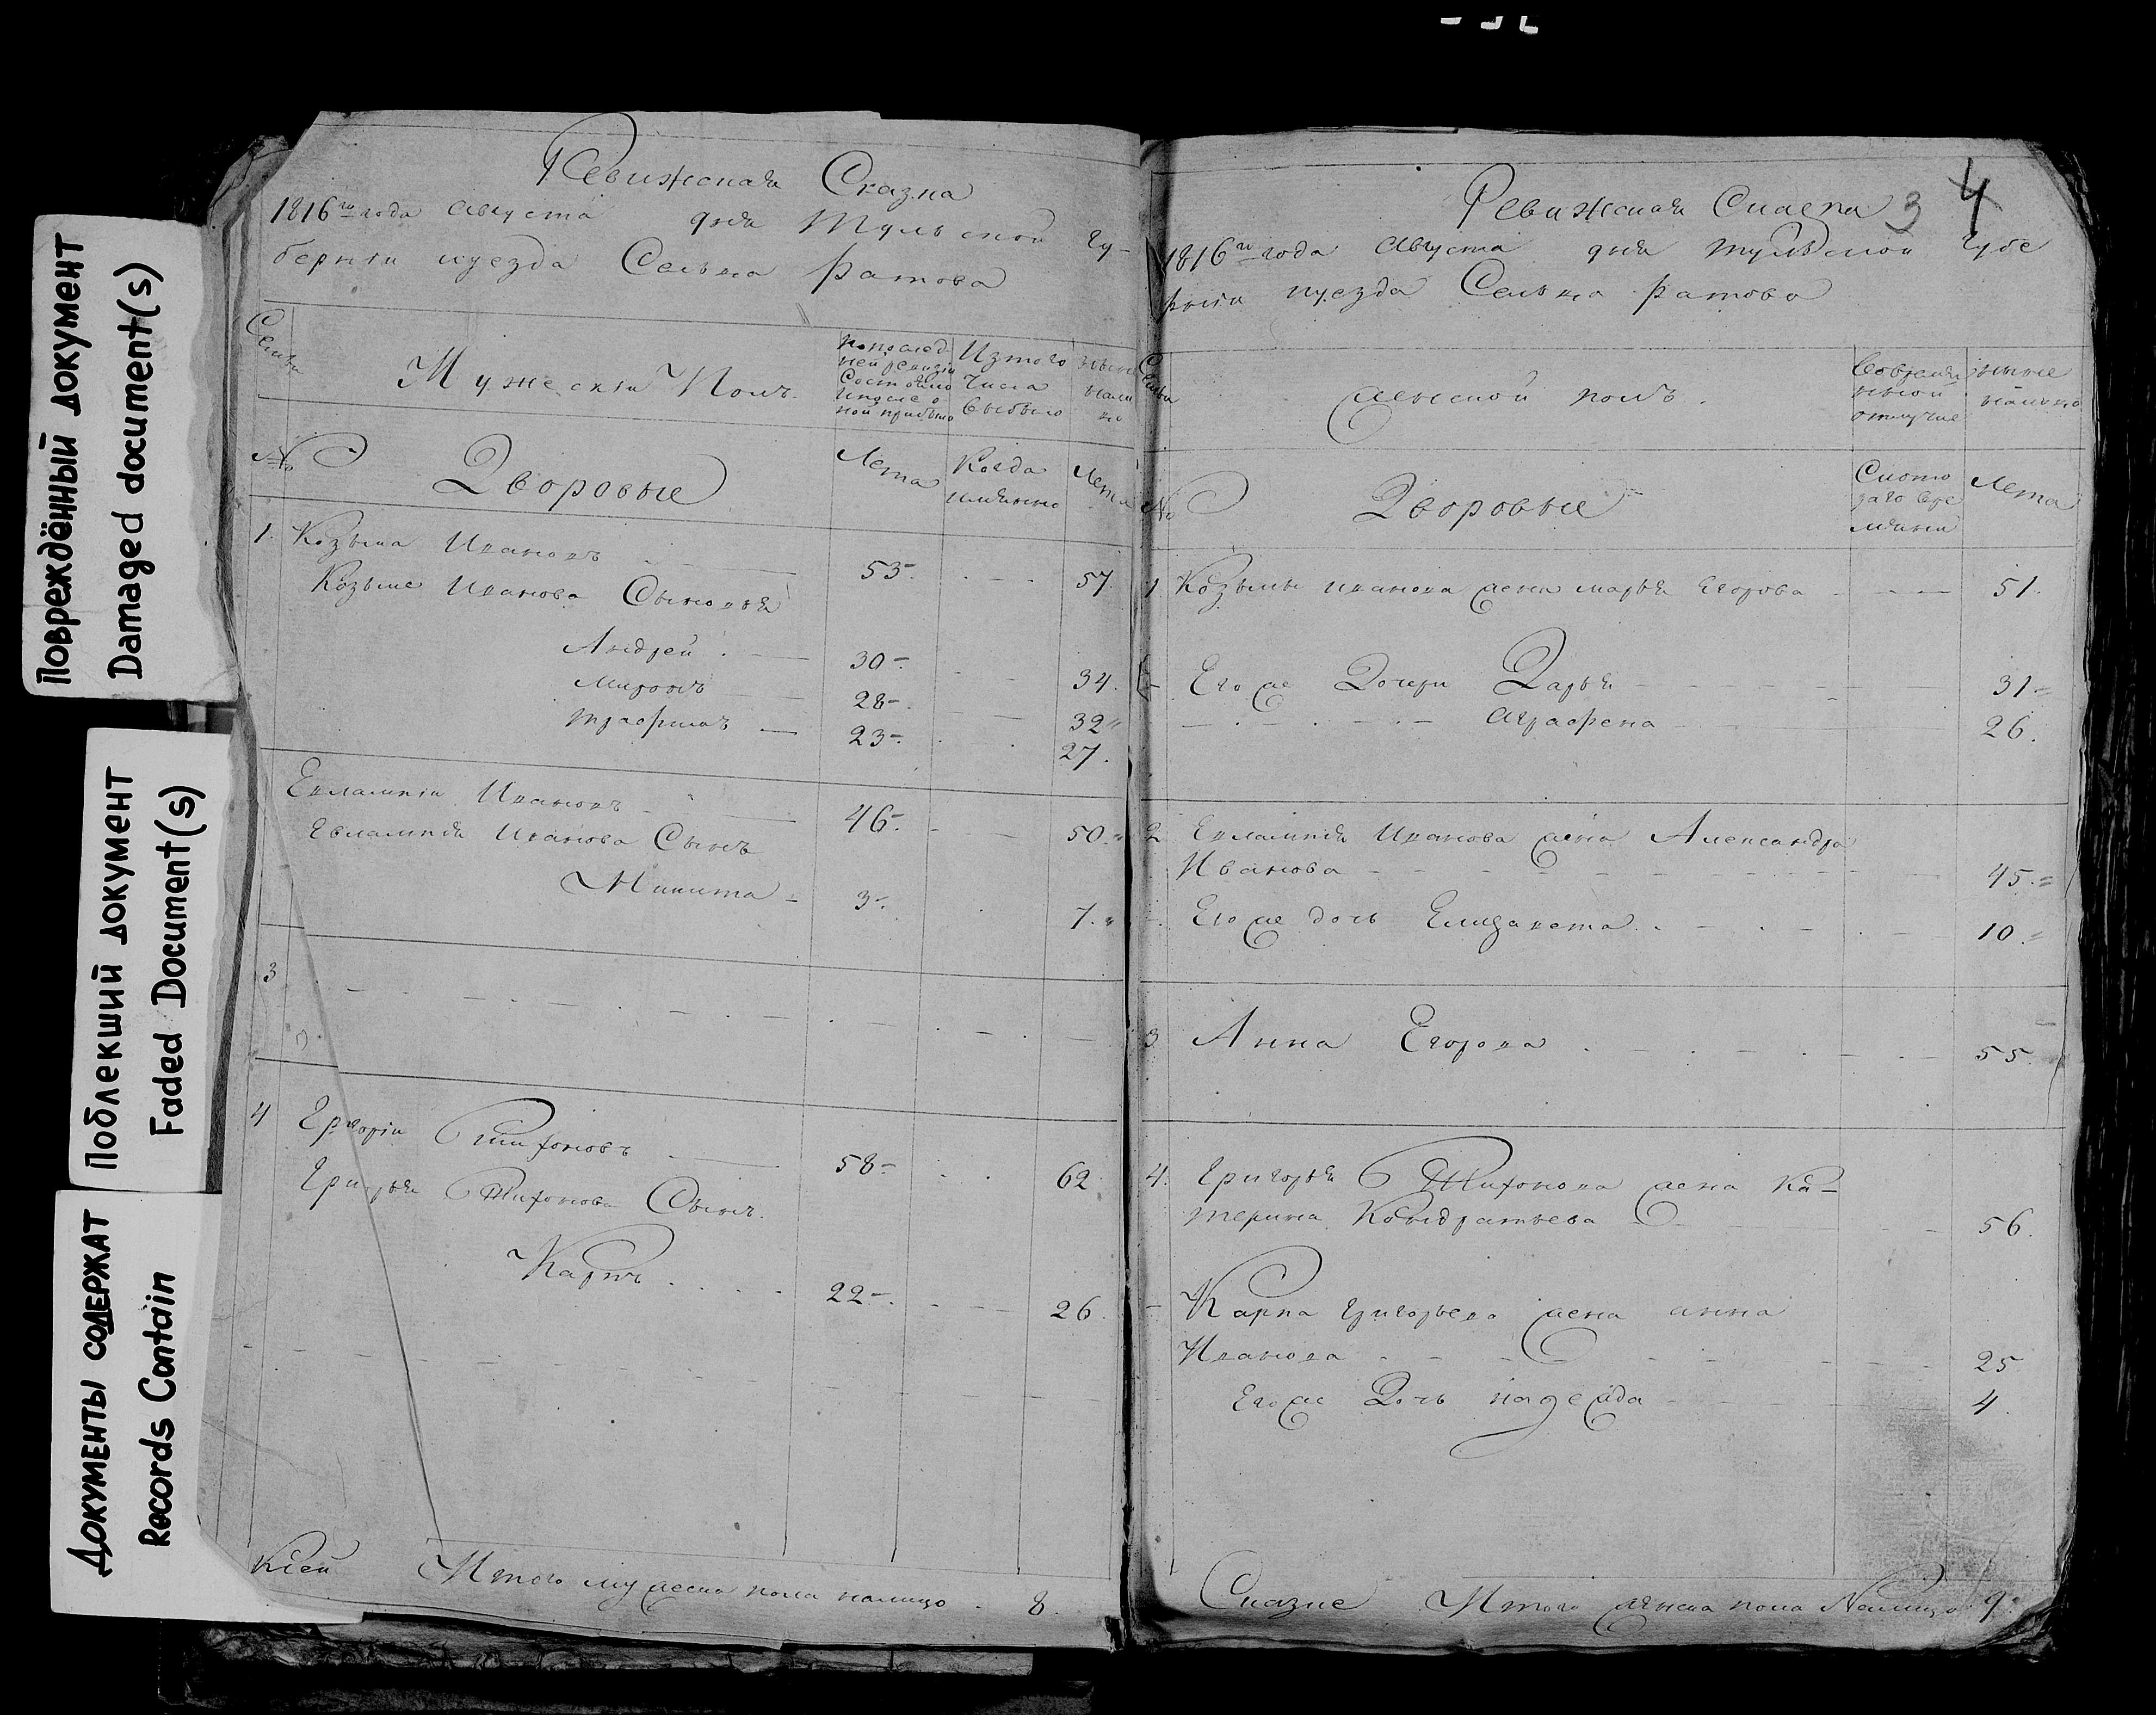 Повреждённый документ
Damaged document(s)
Поблекший документ
Faded Document(s)
Документы содержат
Records Contain
Ревижская Сказка
1816го года Августа дня Тульской гу-
бернiи иуезда Сельца Ратова
Семьи
Мужескiй Полъ.
попослед
ней ревизiи
Состояло
ипосле о
ной прибыло
Изтого
Числа
выбыло
ныне
нали
цо
№
Дворовые
Лета
Когда
имянно
Лета
1. Козьма Ивановъ 53. 57
Козьме Иванова Сыновья
Андрей. 30. 34.
Миронъ 28. 32
трофимъ 23. 27.
Евлампiй Ивановъ 46. 50.
Евлампия Иванова Сынъ
Микита 3. 7.
3
4 Григорiй Тихоновъ 58 62
Григорья Тихонова Сынъ.
Карпъ 22. 26.
Итого мужеска пола налицо 8.
3 4
Ревижская Сказка
1816го года Августа дня тульской губе
рнiи иуезда Сельца Ратова
Семьи
женской полъ.
Вовремян
ной
отлучке
ныне
налицо
№
Дворовые
Ското
раго вре
мяни
Лета
1 Козьмы иванова жена марья Егорова 51.
Его же Дочери Дарья 31
Аграфена 26.
2 Евлампия Иванова жена Александра
Иванова 45.
Его же дочь Елизавета 10.
3 Анна Егорова 55
4. Григорья Тихонова жена Ка-
терина Кондратьева 56.
Карпа григорьева жена анна
Иванова 25
Его же Дочь надежда 4.
Сказке Итого женска пола Налицо 9.